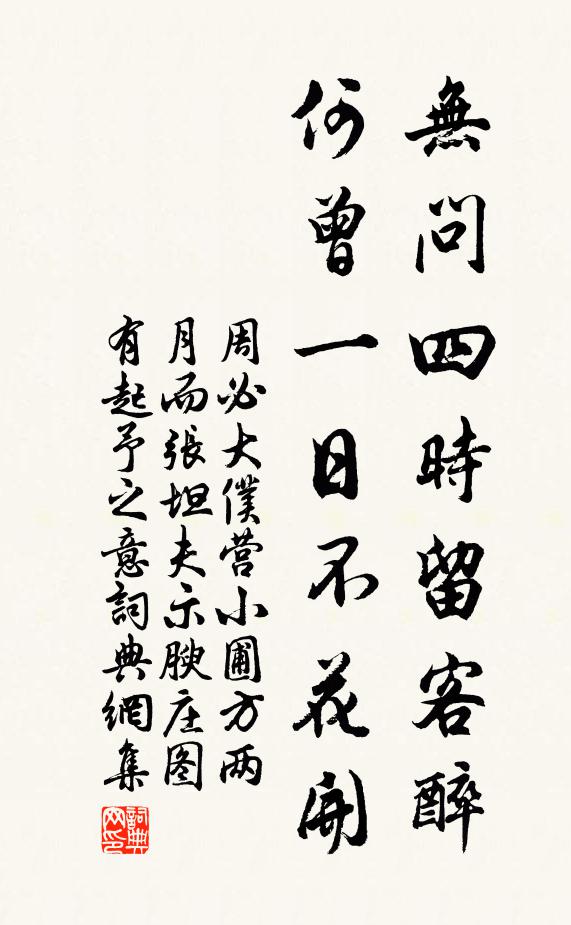 無問四時留客醉
何曾一日不花開
周必大僕营小圃方两
月而張坦夫示腴庄图
有起予之意詞典網集
詞典网印